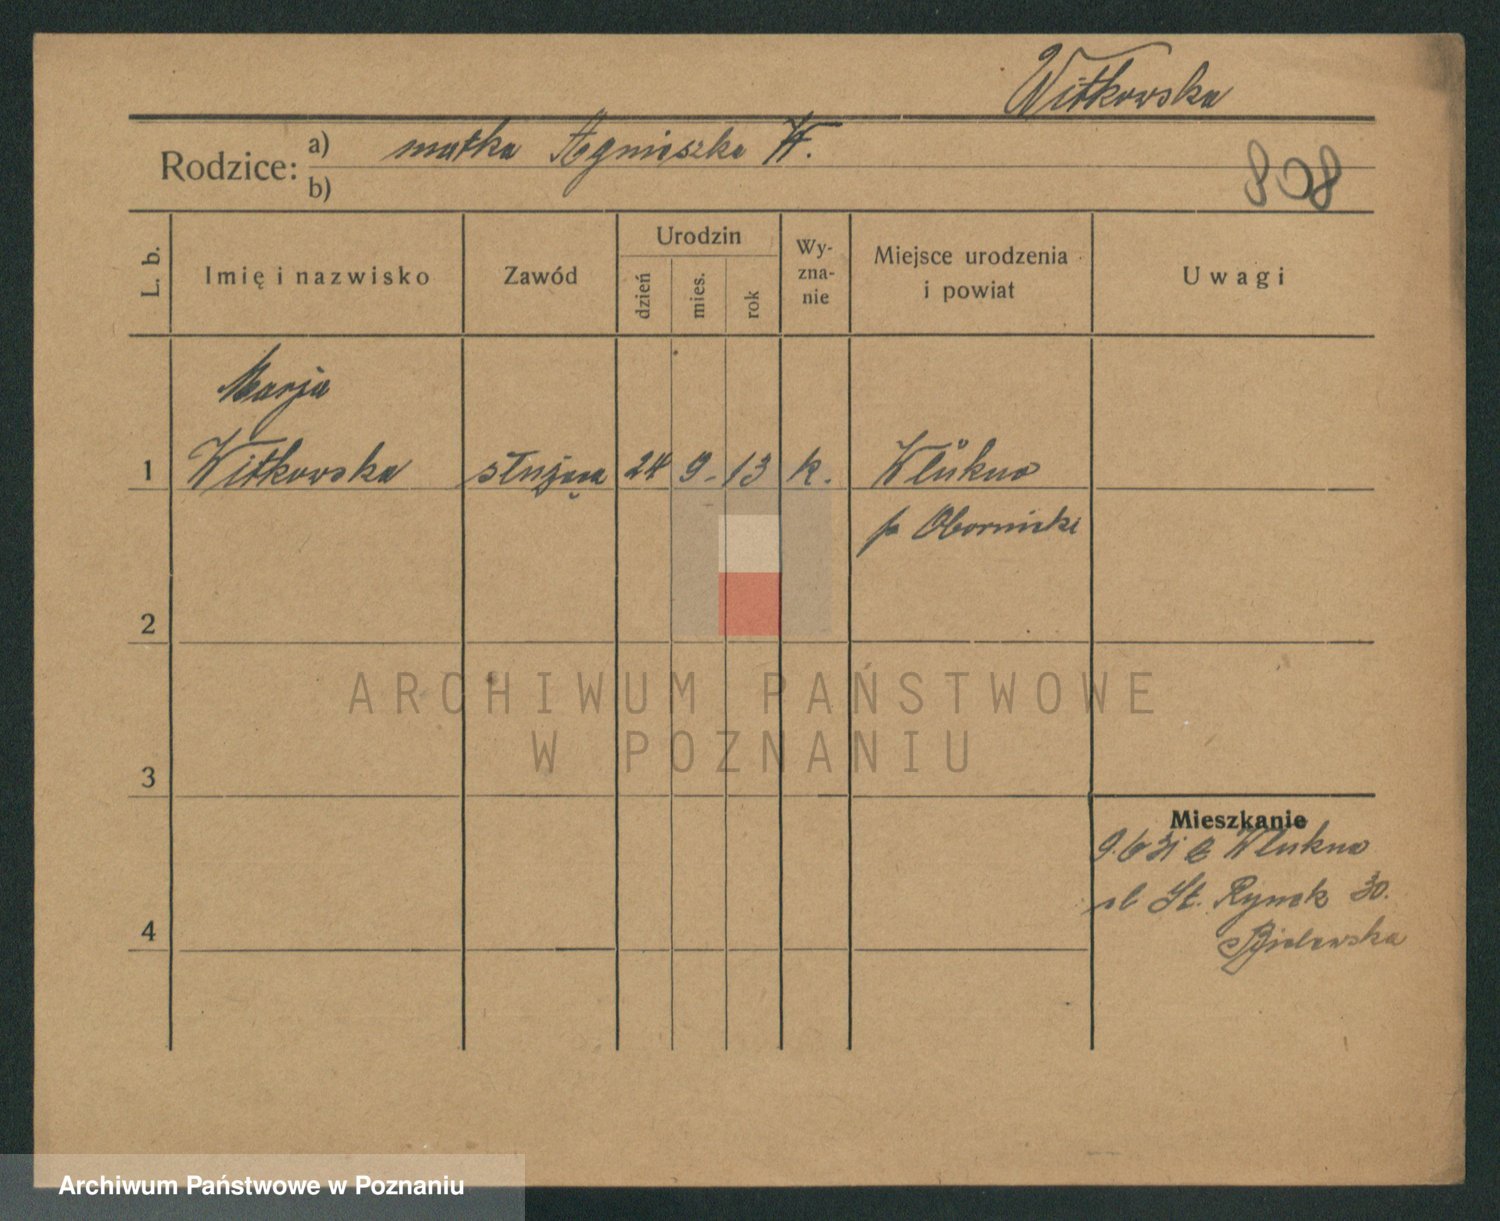 Witkowska
Rodzice: a) matka Agnieszka W.
b)
808
L. b.
Imię i nazwisko
Zawód
Urodzin
dzień
mies.
rok
Wy-
zna-
nie
Miejsce urodzenia
i powiat
Uwagi
Marja
1 Witkowska służąca 24 9. 13 k. Wlukno
p Obornicki
2
ARCHIWUM PAŃSTWOWE
W POZNANIU
3
Mieszkanie
9.6 31 z Wlukna
ul St. Rynek 30.
4
Bielawska
Archiwum Państwowe w Poznaniu